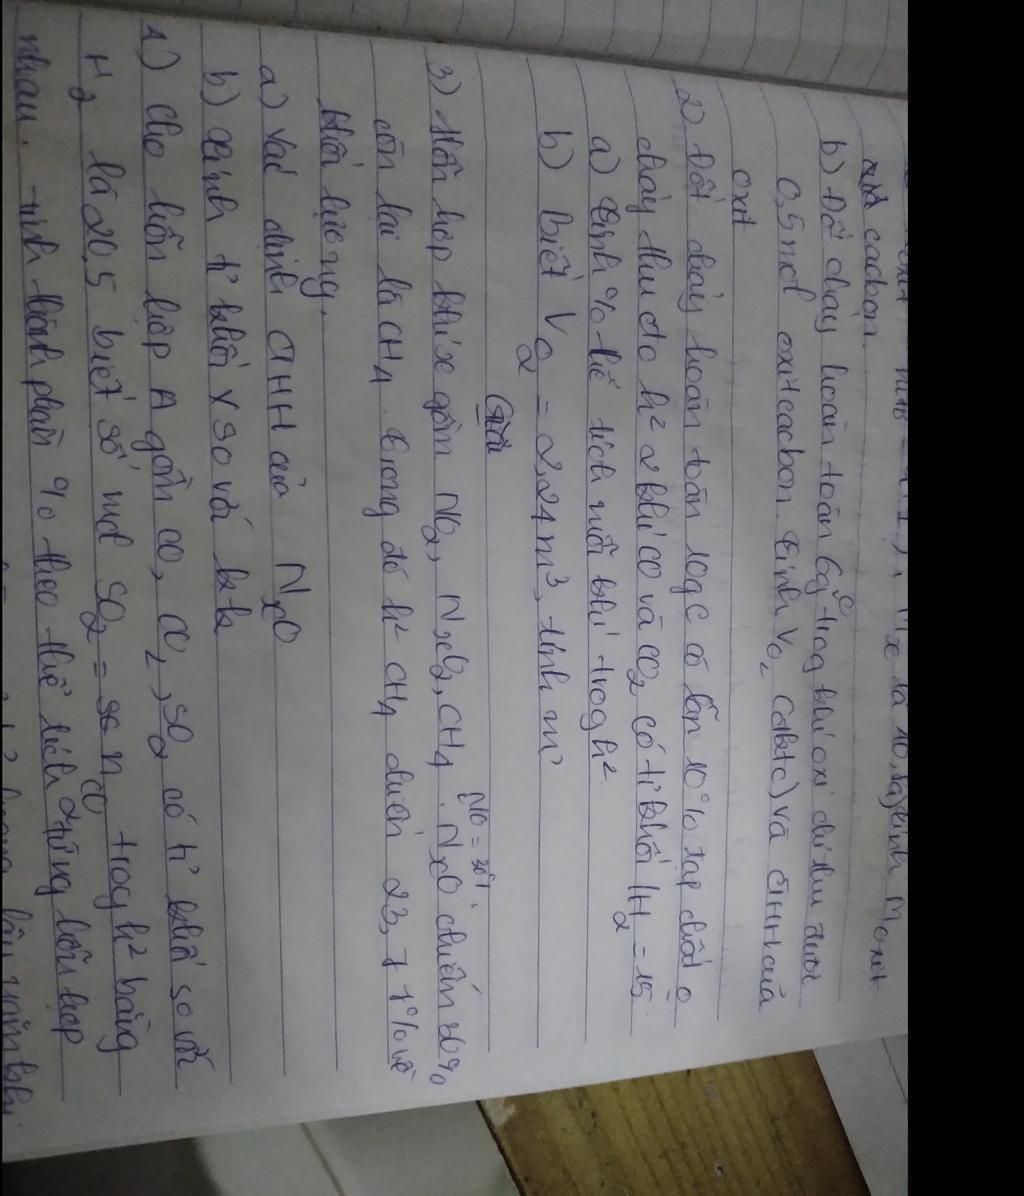 cacbon.
b) Đốt cháy hoàn toàn 6g C trog khí oxi dư thu được
0,5 mol oxit cacbon tính VO2 (đktc) và CTHH của
oxit
2) Đốt cháy hoàn toàn 10g C có lẫn 10% tạp chất
cháy thu đc h² 2 khí CO và CO2 có tỉ khối /H2 = 15
a) tính % thể tích mỗi khí trog h².
b) biết VO2 = 2,24 m³, tính m
Giải
3) Hỗn hợp khí x gồm NO2, NxO2, CH4. NxO chiếm 30%
còn lại là CH4. trong đó h² CH4 chiếm 23,7 1% về
khối lượng.
a) Xác định CTHH của NxO
b) tính tỉ khối X so với kk
1) cho hỗn hợp A gồm CO, CO2, SO2 có tỉ khối so với
H2 là 20,5 biết số mol SO2 = nCO trog h² bằng
nhau. tính thành phần % theo thể tích hỗn hợp